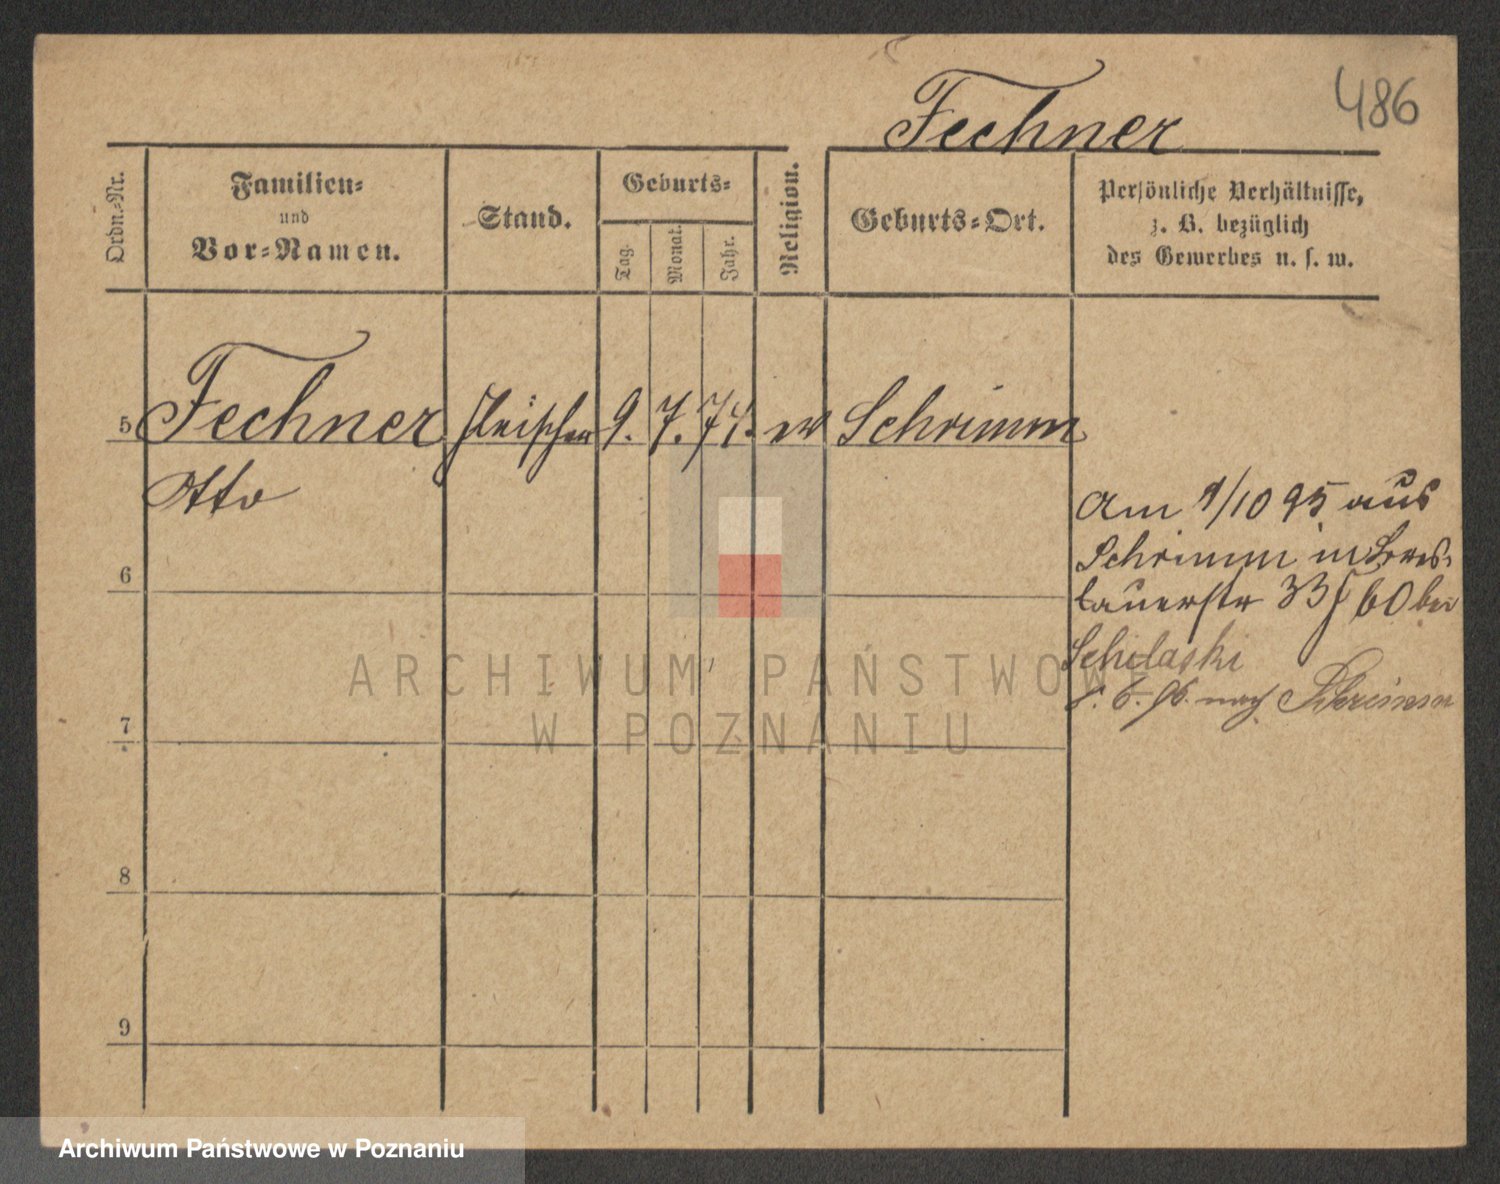 486
Fechner
Ordn.-Nr.
Familien-
und
Vor-Namen.
Stand.
Geburts-
Tag.
Monat.
Jahr.
Religion.
Geburts-Ort.
Persönliche Verhältnisse,
z. B. bezüglich
des Gewerbes u. s. w.
5 Fechner Fleischer 9. 7. 74. ev Schrimm
Otto
Am 9/10 95 aus
Schrimm in Bres-
lauerstr 33 60 bei
6
ARCHIWUM PAŃSTWOWE
W POZNANIU
6. 96. nach Schrimm
7
8
9
Archiwum Państwowe w Poznaniu